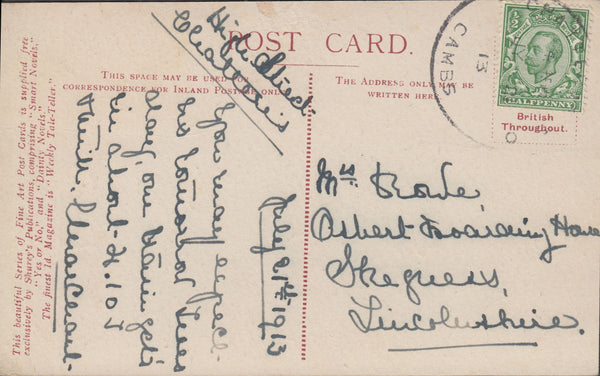 POST CARD.
THIS SPACE MAY BE USED FOR
CORRESPONDENCE FOR INLAND POSTAGE ONLY
THE ADDRESS ONLY MAY BE
WRITTEN HERE
This beautiful Series of Fine Art Post Cards is supplied free
exclusively by Shurey's Publications, comprising "Smart Novels,"
"Yes or No," and "Dainty Novels."
The finest 1d. Magazine is "Weekly Tale-Teller."
High Street
Chatteris
July 21st 1913
You may expect
us tomorrow Tues
day, our train gets
in about 4.10
CAMBS
13
HALFPENNY
British
Throughout.
Mrs
Osbert Boarding House
Skegness,
Lincolnshire.